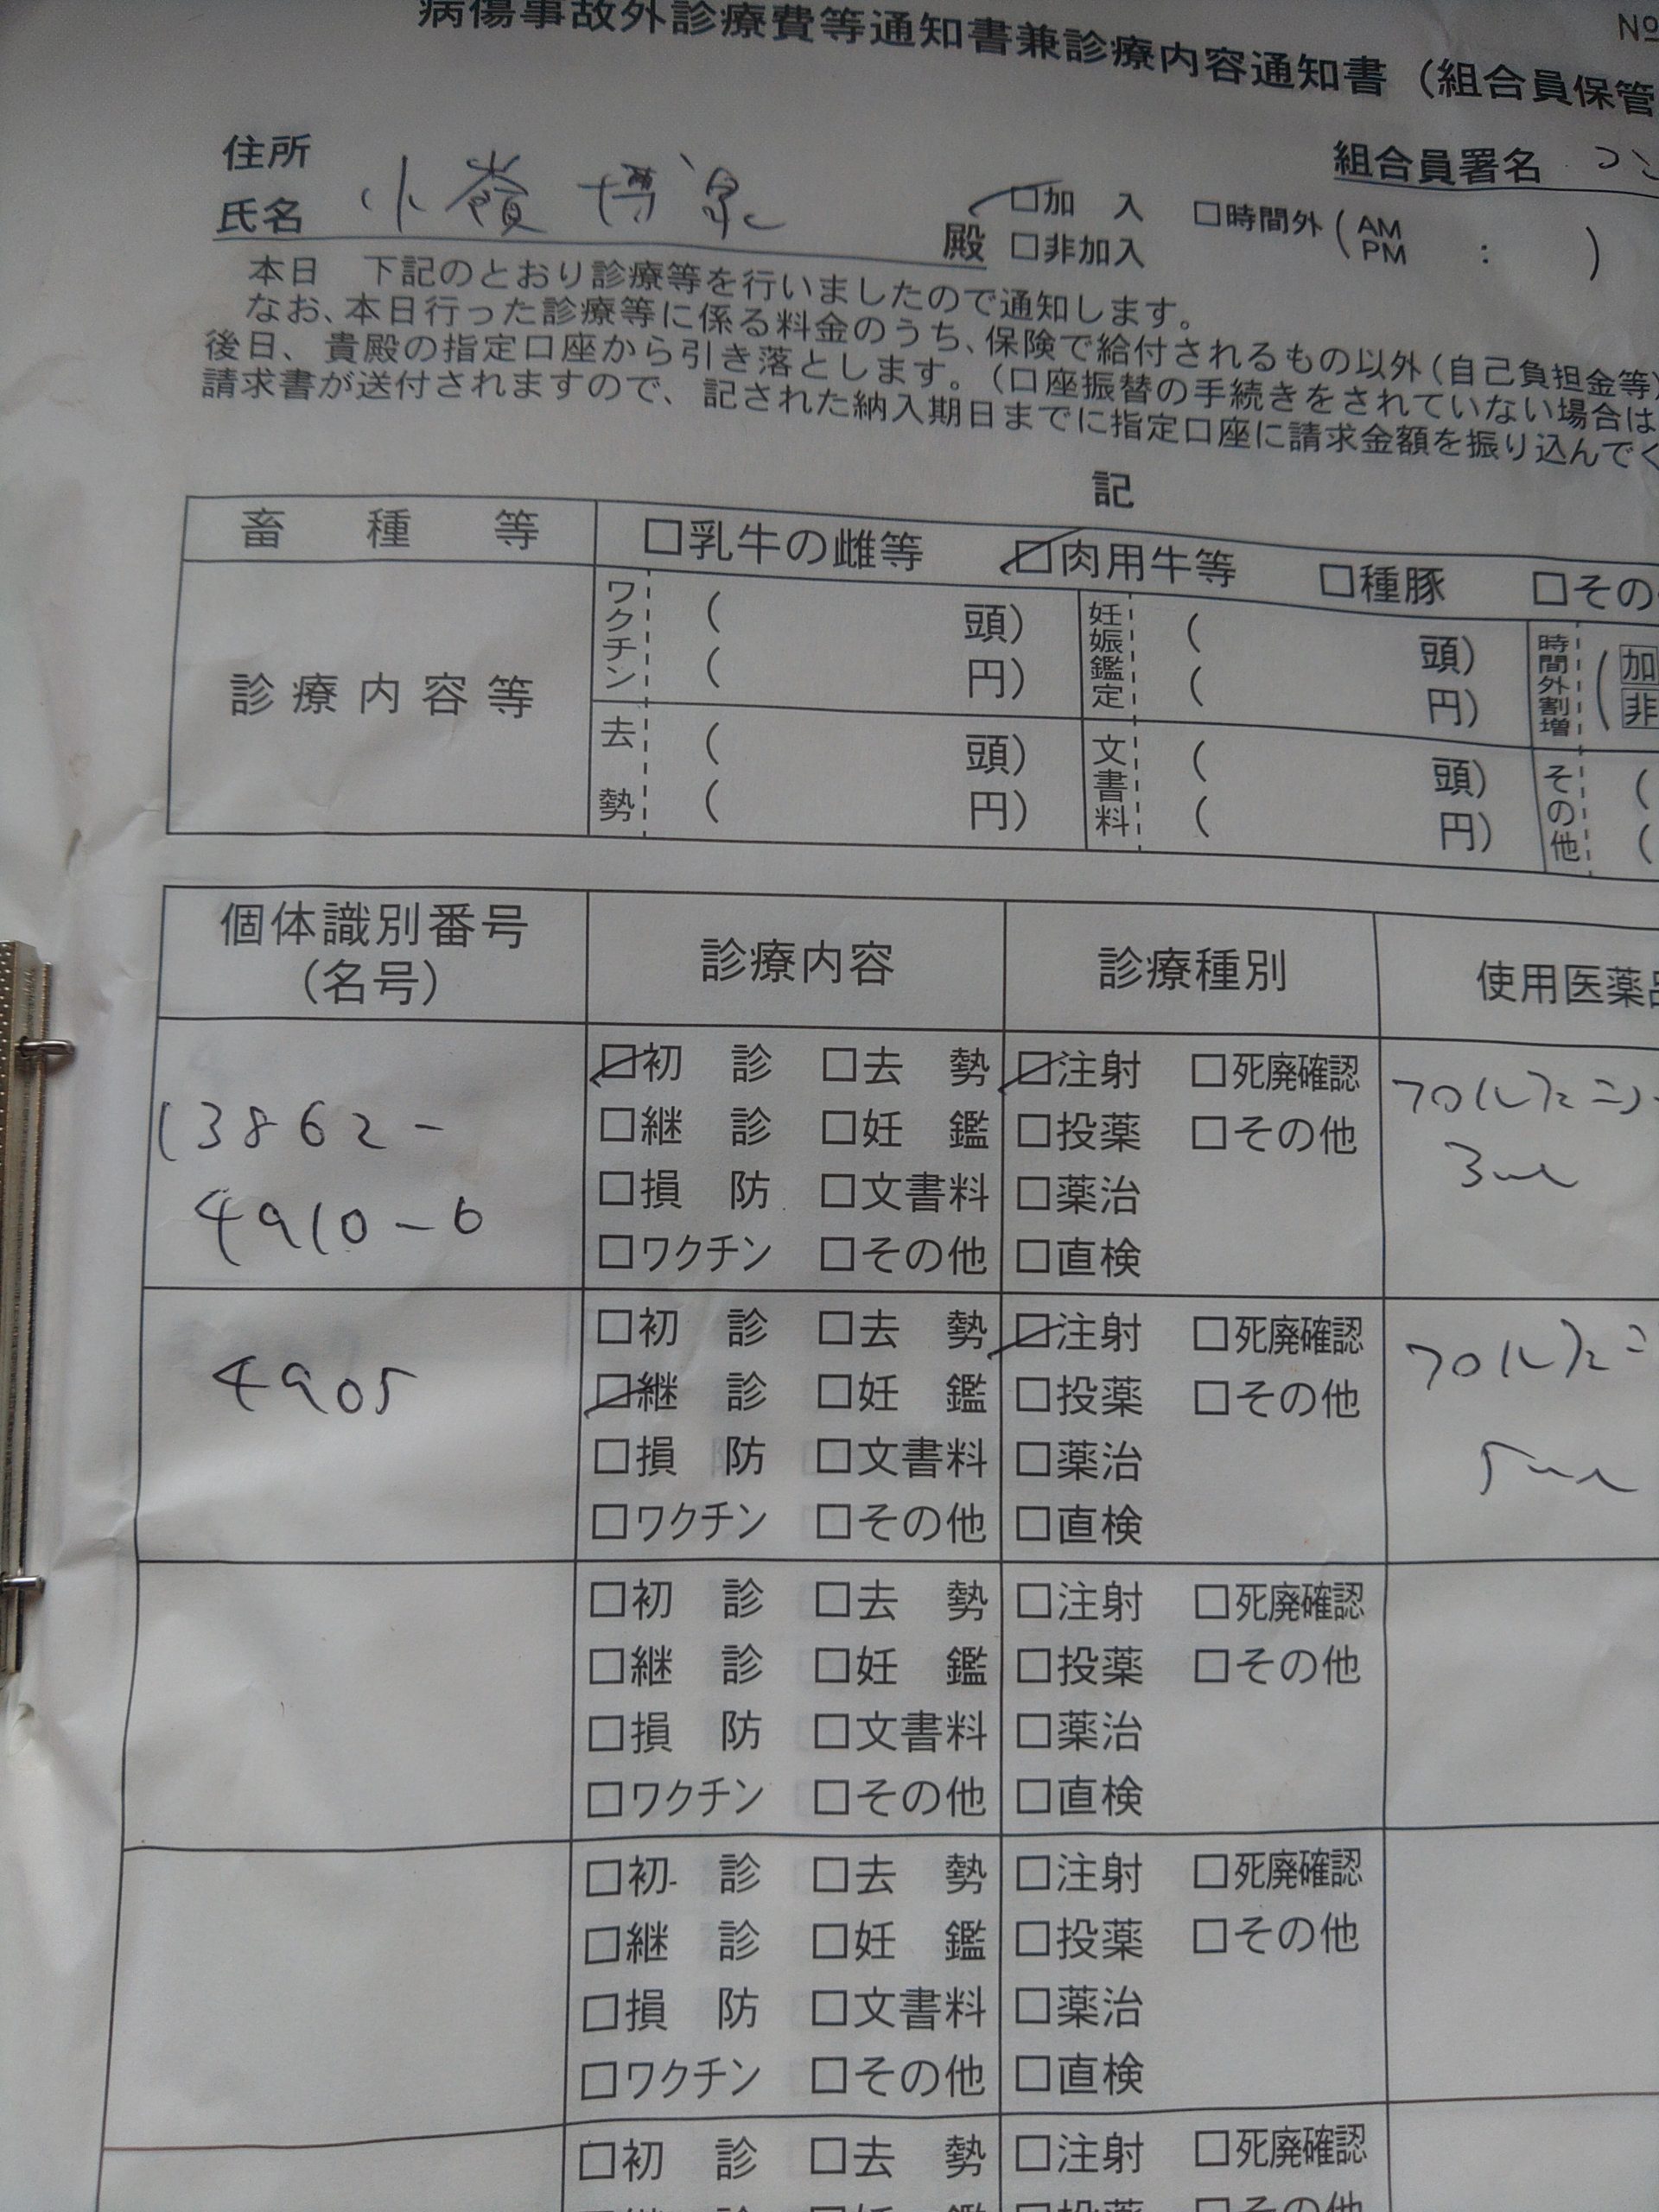 病傷事故外診療費等通知書兼診療内容通知書（組合員保管
№
住所
氏名 小嶺 博泉 殿
組合員署名
□加 入 □時間外（AM PM ： ）
□非加入
本日 下記のとおり診療等を行いましたので通知します。
なお、本日行った診療等に係る料金のうち、保険で給付されるもの以外（自己負担金等）
後日、貴殿の指定口座から引き落とします。（口座振替の手続きをされていない場合は
請求書が送付されますので、記された納入期日までに指定口座に請求金額を振り込んでく
記
畜種等 □乳牛の雌等 □肉用牛等 □種豚 □その
診療内容等
ワクチン （ 頭） 妊娠鑑定 （ 頭） 時間外割増 （ 加
（ 円） （ 円） 非
去勢 （ 頭） 文書料 （ 頭） その他 （
（ 円） （ 円） （
個体識別番号 （名号） 診療内容 診療種別 使用医薬品
13862-
4910-6
□初診 □去勢 □注射 □死廃確認
□継診 □妊鑑 □投薬 □その他
□損防 □文書料 □薬治
□ワクチン □その他 □直検
3ml
4905
□初診 □去勢 □注射 □死廃確認
□継診 □妊鑑 □投薬 □その他
□損防 □文書料 □薬治
□ワクチン □その他 □直検
5ml
□初診 □去勢 □注射 □死廃確認
□継診 □妊鑑 □投薬 □その他
□損防 □文書料 □薬治
□ワクチン □その他 □直検
□初診 □去勢 □注射 □死廃確認
□継診 □妊鑑 □投薬 □その他
□損防 □文書料 □薬治
□ワクチン □その他 □直検
□初診 □去勢 □注射 □死廃確認
□継診 □妊鑑 □投薬 □その他